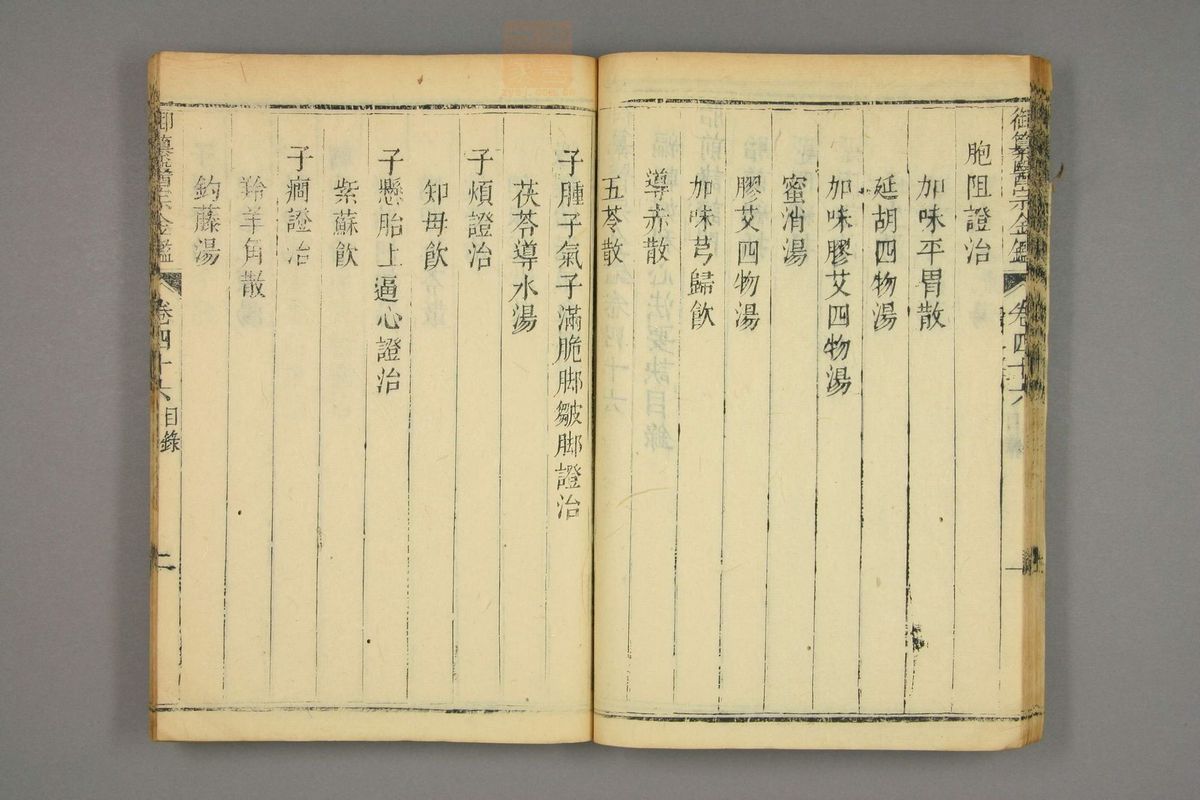 御纂醫宗金鑑 卷四十六
胞阻證治
加味平胃散
延胡四物湯
加味膠艾四物湯
蜜消湯
膠艾四物湯
加味芎歸飲
導赤散
五苓散
子腫子氣子滿脆脚皺脚證治
茯苓導水湯
子煩證治
知母飲
子懸胎上逼心證治
紫蘇飲
子癇證治
羚羊角散
鈎藤湯
御纂醫宗金鑑 卷四十六 目錄 二